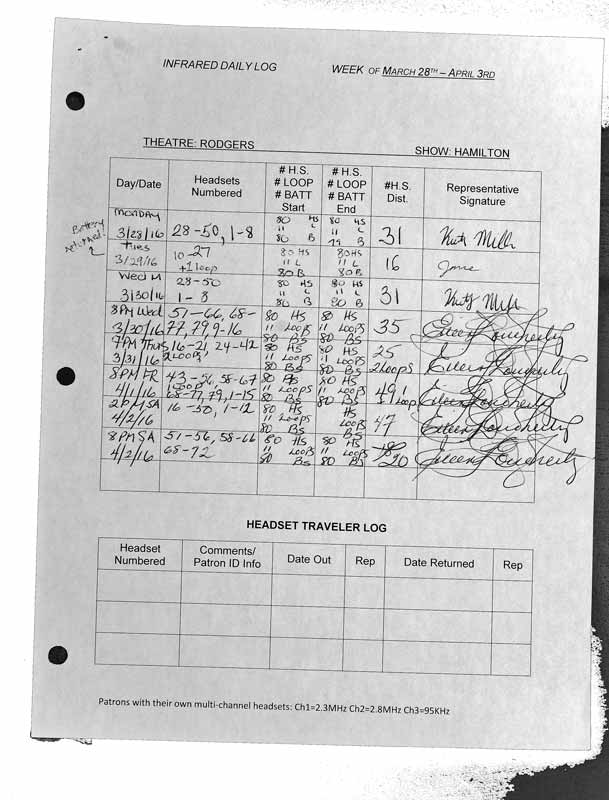 INFRARED DAILY LOG WEEK OF MARCH 28TH – APRIL 3RD
THEATRE: RODGERS SHOW: HAMILTON
Day/Date
Headsets
Numbered
# H.S.
# LOOP
# BATT
Start
# H.S.
# LOOP
# BATT
End
#H.S.
Dist.
Representative
Signature
Battery
returned!
Monday
3/28/16
28-50, 1-8
80 HS
11 L
80 B
80 HS
11 L
79 B
31
Tues
3/29/16
10-27
+1 loop
80 HS
11 L
80 B
80 HS
11 L
80 B
16
Wed M
3/30/16
28-50
1-8
80 HS
11 L
80 B
80 HS
11 L
80 B
31
8PM Wed
3/30/16
51-66, 68-
77, 79, 9-16
80 HS
11 Loops
80 BS
80 HS
11 Loops
80 BS
35
Eileen Dougherty
7PM Thurs
3/31/16
16-21, 24-42
2 Loops
80 HS
11 Loops
80 BS
80 HS
11 Loops
80 BS
25
2 Loops
Eileen Dougherty
8PM FR
4/1/16
43-56, 58-67
1 Loop
68-77, 79, 1-15
80 HS
11 Loops
80 BS
80 HS
11 Loops
80 BS
49
1 Loop
Eileen Dougherty
2PM SA
4/2/16
16-50, 1-12
80 HS
11 Loops
80 BS
HS
Loops
BS
47
Eileen Dougherty
8PM SA
4/2/16
51-56, 58-66
68-72
80 HS
11 Loops
80 BS
80 HS
11 Loops
80 BS
20
Eileen Dougherty
HEADSET TRAVELER LOG
Headset
Numbered
Comments/
Patron ID Info
Date Out
Rep
Date Returned
Rep
Patrons with their own multi-channel headsets: Ch1=2.3MHz Ch2=2.8MHz Ch3=95KHz